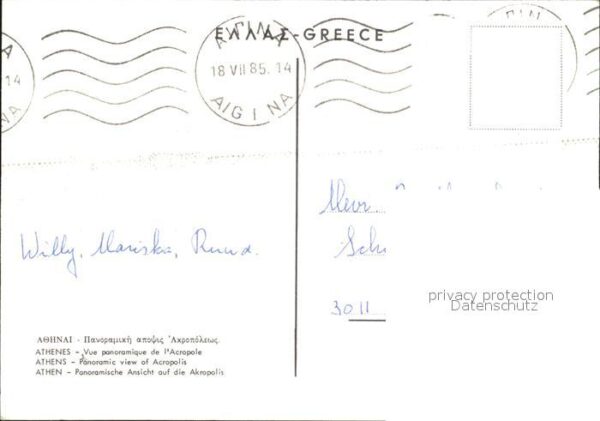 ΕΛΛΑΣ-GREECE
ΑΙΓΙΝΑ
18 VII 85. 14
AIGINA
14
Willy, Mariska, Ruud.
Mevr.
3011
privacy protection
Datenschutz
ΑΘΗΝΑΙ - Πανοραμική αποψις Ἀκροπόλεως.
ATHENES – Vue panoramique de l'Acropole
ATHENS – Panoramic view of Acropolis
ATHEN – Panoramische Ansicht auf die Akropolis